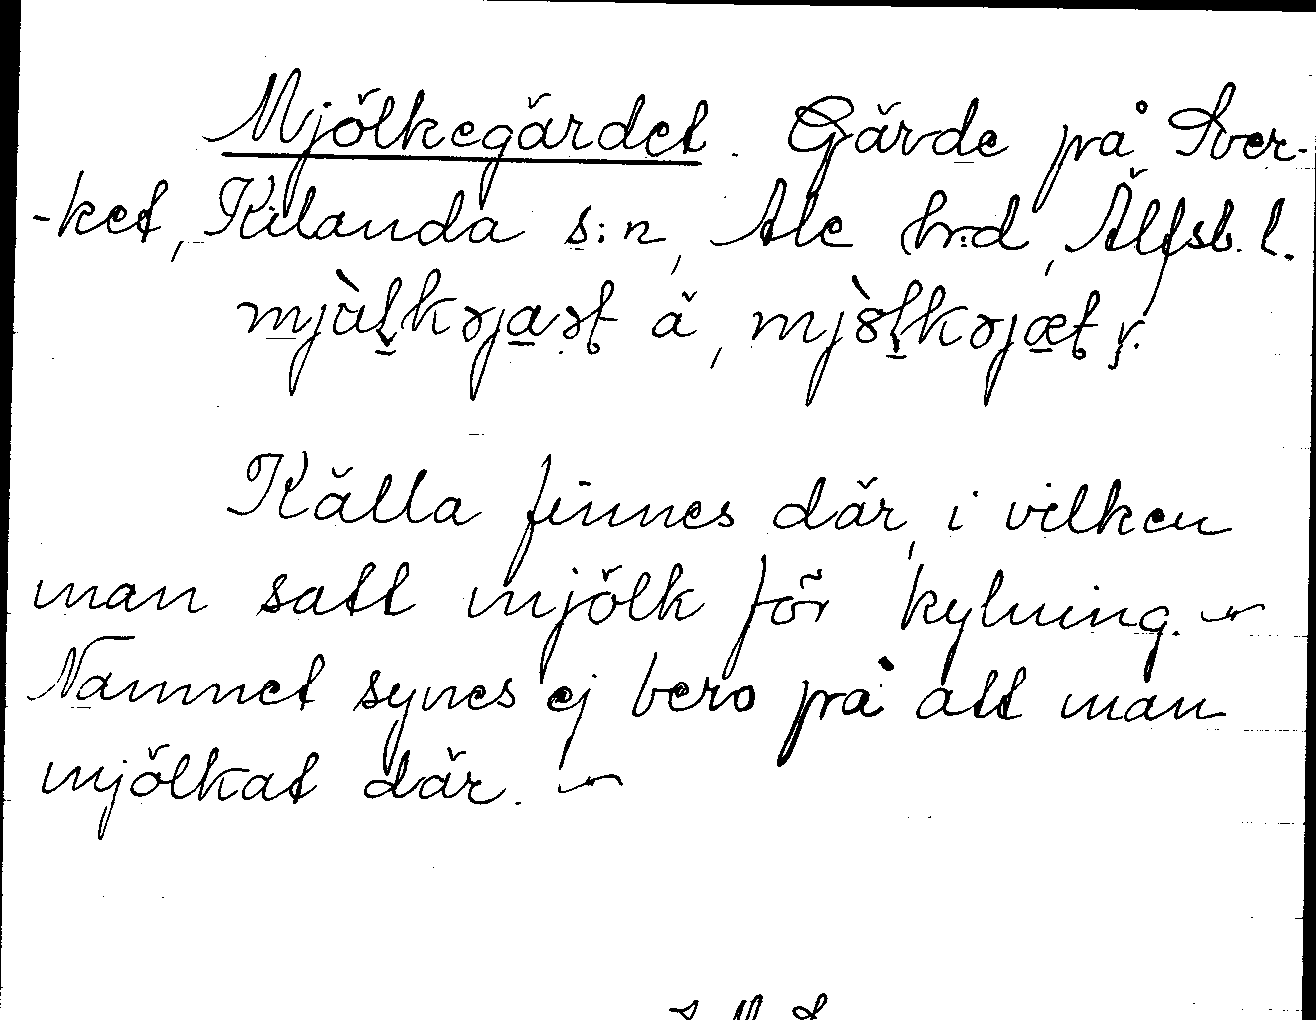 Mjölkegärdet. Gärde på Sver-
-ket, Kilanda s:n, Ale hrd, Älfsb. l.
Källa finnes där, i vilken
man satt mjölk för kylning. –
Namnet synes ej bero på att man
mjölkat där. –